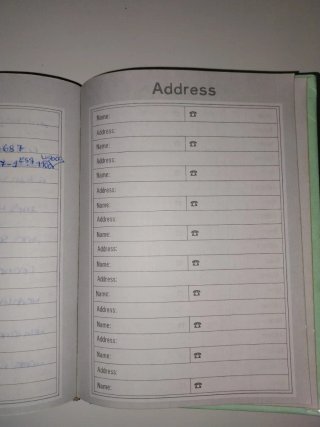 687
Address
Name: ☎
Address:
Name: ☎
Address:
Name: ☎
Address:
Name: ☎
Address:
Name: ☎
Address:
Name: ☎
Address:
Name: ☎
Address:
Name: ☎
Address:
Name: ☎
Address:
Name: ☎